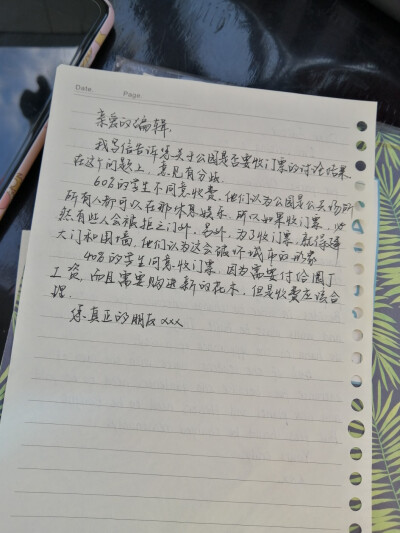 Date.        Page.
亲爱的编辑,
我写信告诉您关于公园是否要收门票的讨论结果.
在这个问题上, 意见有分歧
60%的学生不同意收费. 他们认为公园是公共场所
所有人都可以在那休息娱乐. 所以如果收门票, 必
然有些人会被拒之门外. 另外, 为了收门票, 就得建
大门和围墙, 他们认为这会破坏城市的形象
40%的学生同意收门票, 因为需要付给园丁
工资, 而且需要购进新的花木, 但是收费应该合
理.
您真正的朋友 xxx